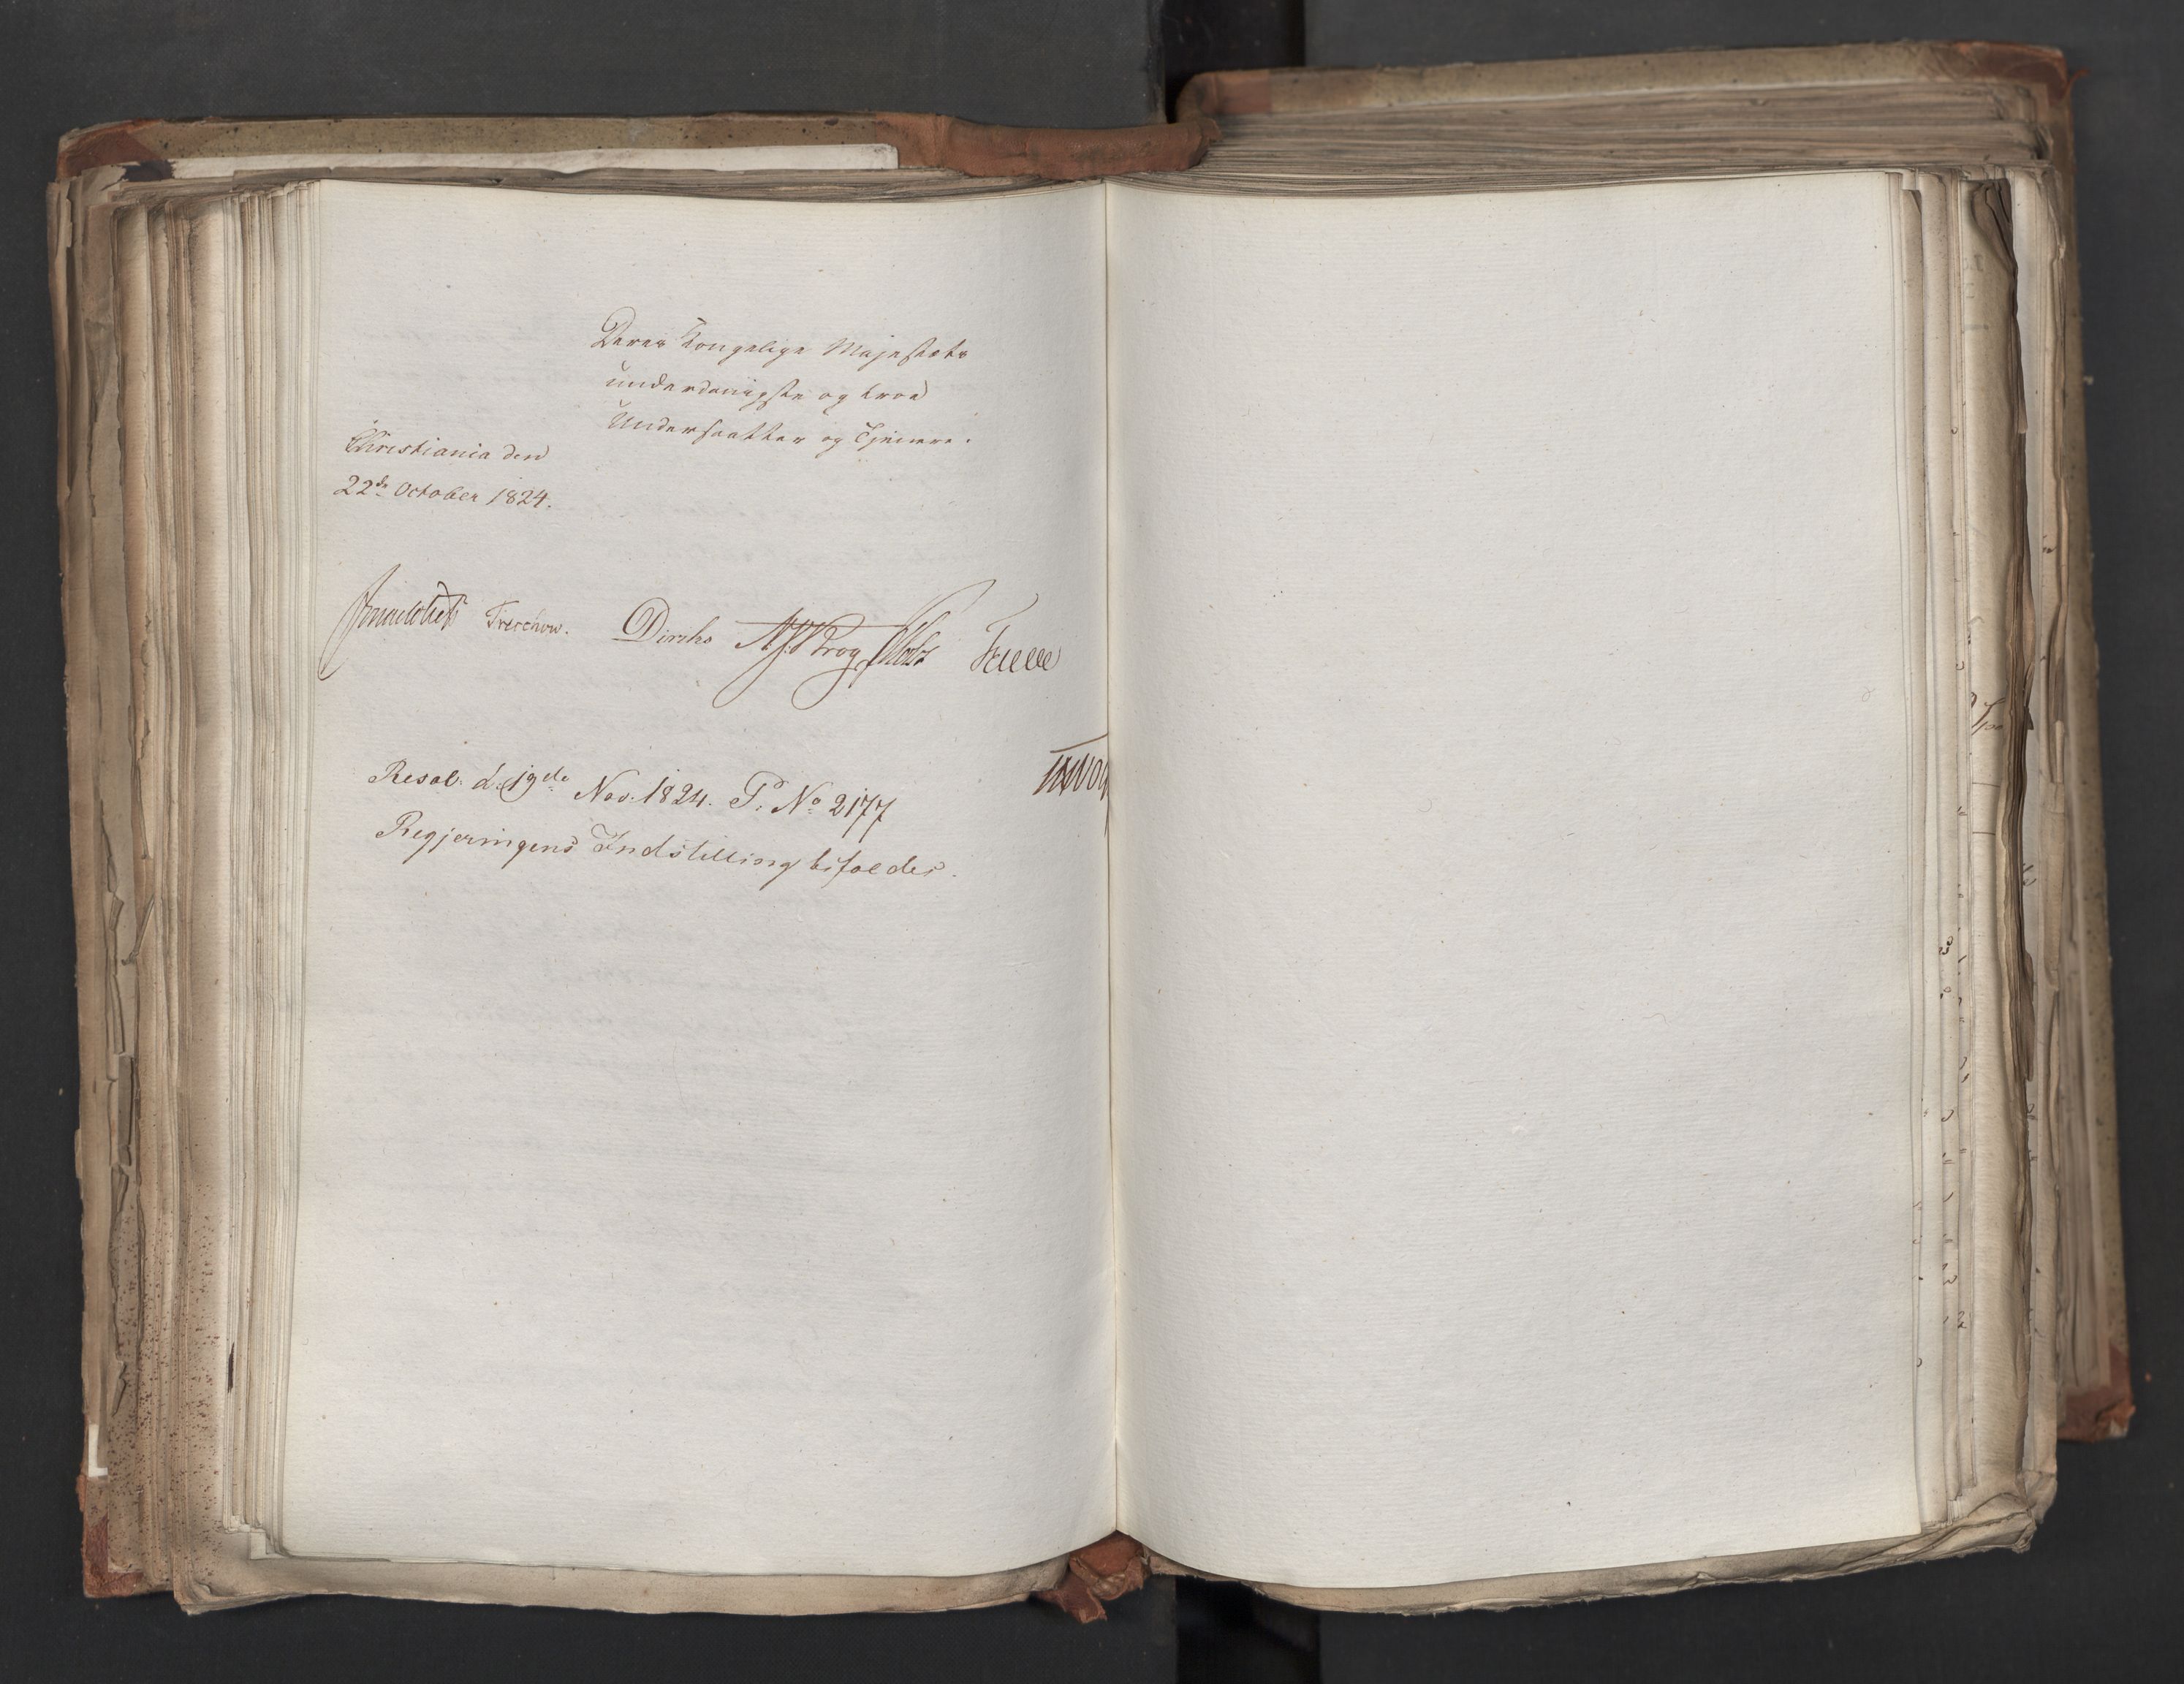 Deres Kongelige Majestæts
underdanigste og troe
Undersaatter og Tjenere.
Christiania den
22de October 1824.
Treschow. Diriks Krog Holst Fasting
Resol. d. 19de Nov. 1824. P. No 2177
Regjeringens Indstilling bifaldes.